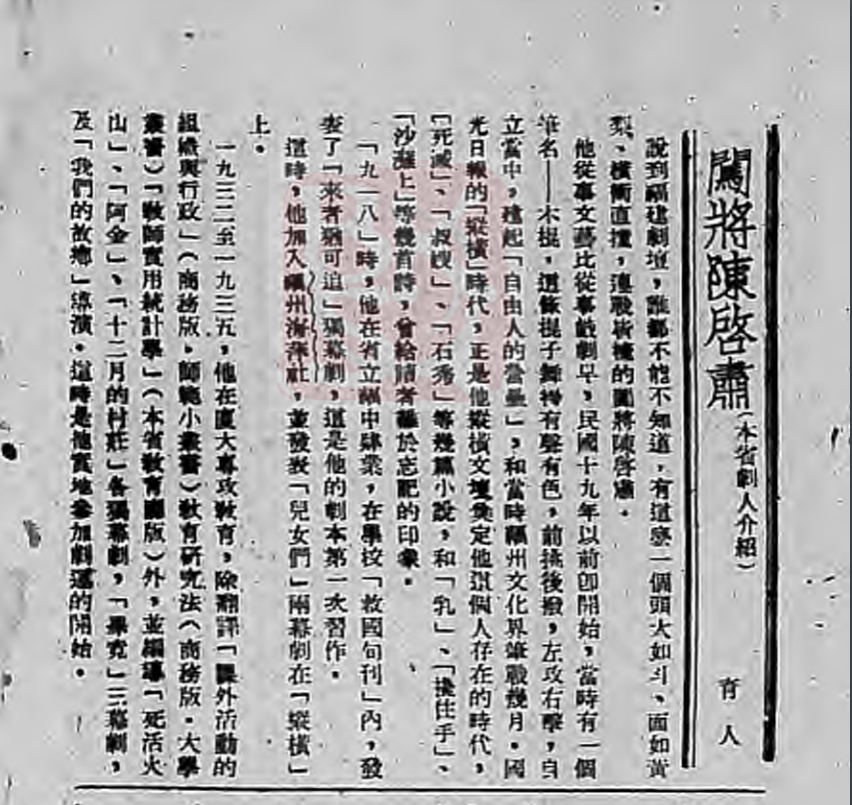 闖將陳啓肅(本省劇人介紹)
育人
說到福建劇壇,誰都不能不知道,有這麼一個頭大如斗、面如黃
梨、橫衝直撞,連戰皆捷的闖將陳啓肅。
他從事文藝比從事戲劇早,民國十九年以前卽開始,當時有一個
筆名——木棍,這條棍子舞得有聲有色,前挑後撥,左攻右擊,自
立當中,建起「自由人的營壘」,和當時福州文化界筆戰幾月。國
光日報的「縱橫」時代,正是他縱橫文壇奠定他這個人存在的時代,
「死滅」、「叔嫂」、「石秀」等幾篇小說,和「乳」、「擒住手」、
「沙灘上」等幾首詩,曾給讀者難於忘記的印象。
「九一八」時,他在省立福中肄業,在學校「救國旬刊」內,發
表了「來者猶可追」獨幕劇,這是他的劇本第一次習作。
這時,他加入福州海萍社,並發表「兒女們」兩幕劇在「縱橫」
上。
一九三二至一九三五,他在廈大專攻敎育,除翻譯「課外活動的
組織與行政」(商務版.師範小叢書)敎育硏究法(商務版.大學
叢書)「敎師實用統計學」(本省敎育廳版)外,並編導「死活火
山」、「阿金」、「十二月的村莊」各獨幕劇,「畢竟」三幕劇,
及「我們的故鄉」導演。這時是他實地參加劇運的開始。